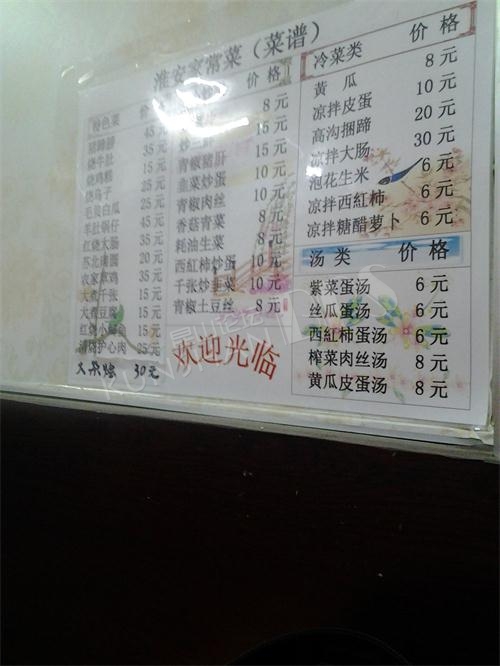 淮安家常菜（菜谱）
特色菜
猪蹄膀 45元
烧羊肚 45元
烧鸡糕 35元
烧乌子 25元
毛豆白瓜 25元
羊肚锅仔 45元
红烧大肠 35元
苏北肉圆 20元
农家草鸡 35元
大煮千张 15元
大煮豆腐 15元
红烧小 15元
清烧护心肉 25元
30元
价格
8元
10元
15元
青椒猪肝 15元
韭菜炒蛋 10元
青椒肉丝 10元
香菇青菜 8元
耗油生菜 8元
西紅柿炒蛋 10元
千张炒韭菜 10元
青椒土豆丝 8元
欢迎光临
冷菜类 价格
黄瓜 8元
凉拌皮蛋 10元
高沟捆蹄 20元
凉拌大肠 30元
泡花生米 6元
凉拌西紅柿 6元
凉拌糖醋萝卜 6元
汤类 价格
紫菜蛋汤 6元
丝瓜蛋汤 6元
西紅柿蛋汤 6元
榨菜肉丝汤 8元
黄瓜皮蛋汤 8元